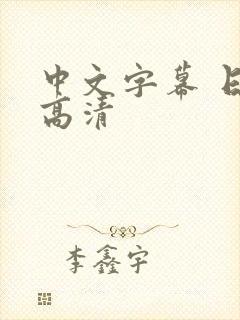 中文字幕
高清
李鑫宇